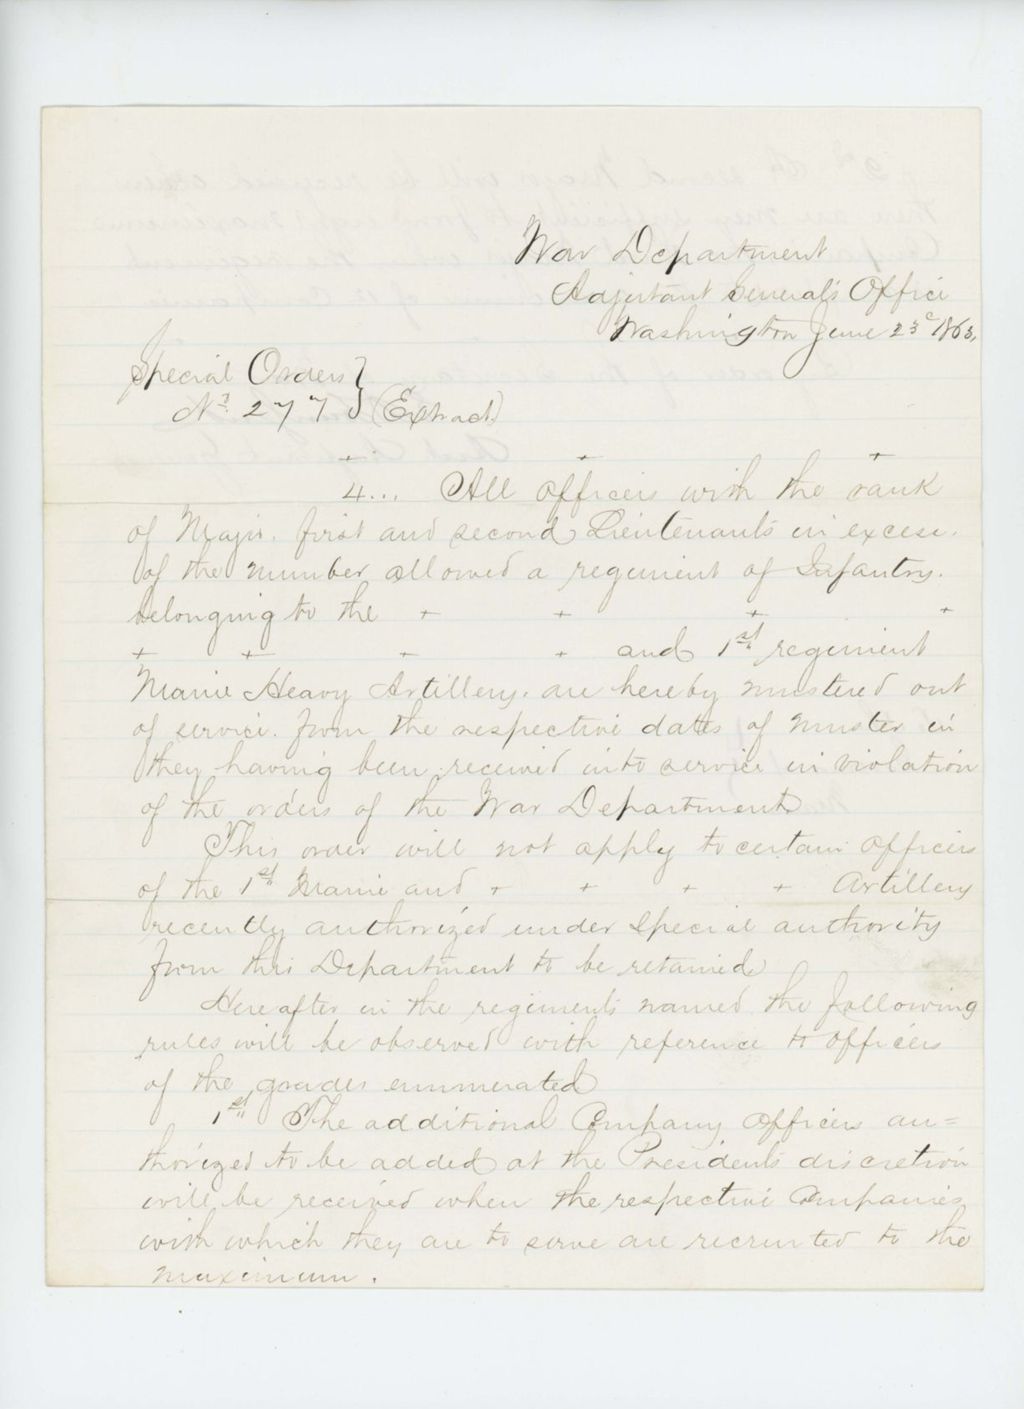 War Department
Adjutant General's Office
Washington June 23d 1863.
Special Orders }
No. 277 } (Extract)
+ + +
4... All officers with the rank
of Major. first and second Lieutenants in excess.
of the number allowed a regiment of Infantry.
belonging to the + + + +
+ + + + and 1st regiment
Maine Heavy Artillery. are hereby mustered out
of service. from the respective dates of muster in
they having been received into service in violation
of the orders of the War Department
This order will not apply to certain officers
of the 1st Maine and + + + + Artillery
recently authorized under special authority
from this Department to be retained
Hereafter in the regiments named the following
rules will be observed with reference to officers
of the grades enumerated
1st The additional Company Officers au=
thorized to be added at the President's discretion
will be received when the respective Companies
with which they are to serve are recruited to the
maximum.